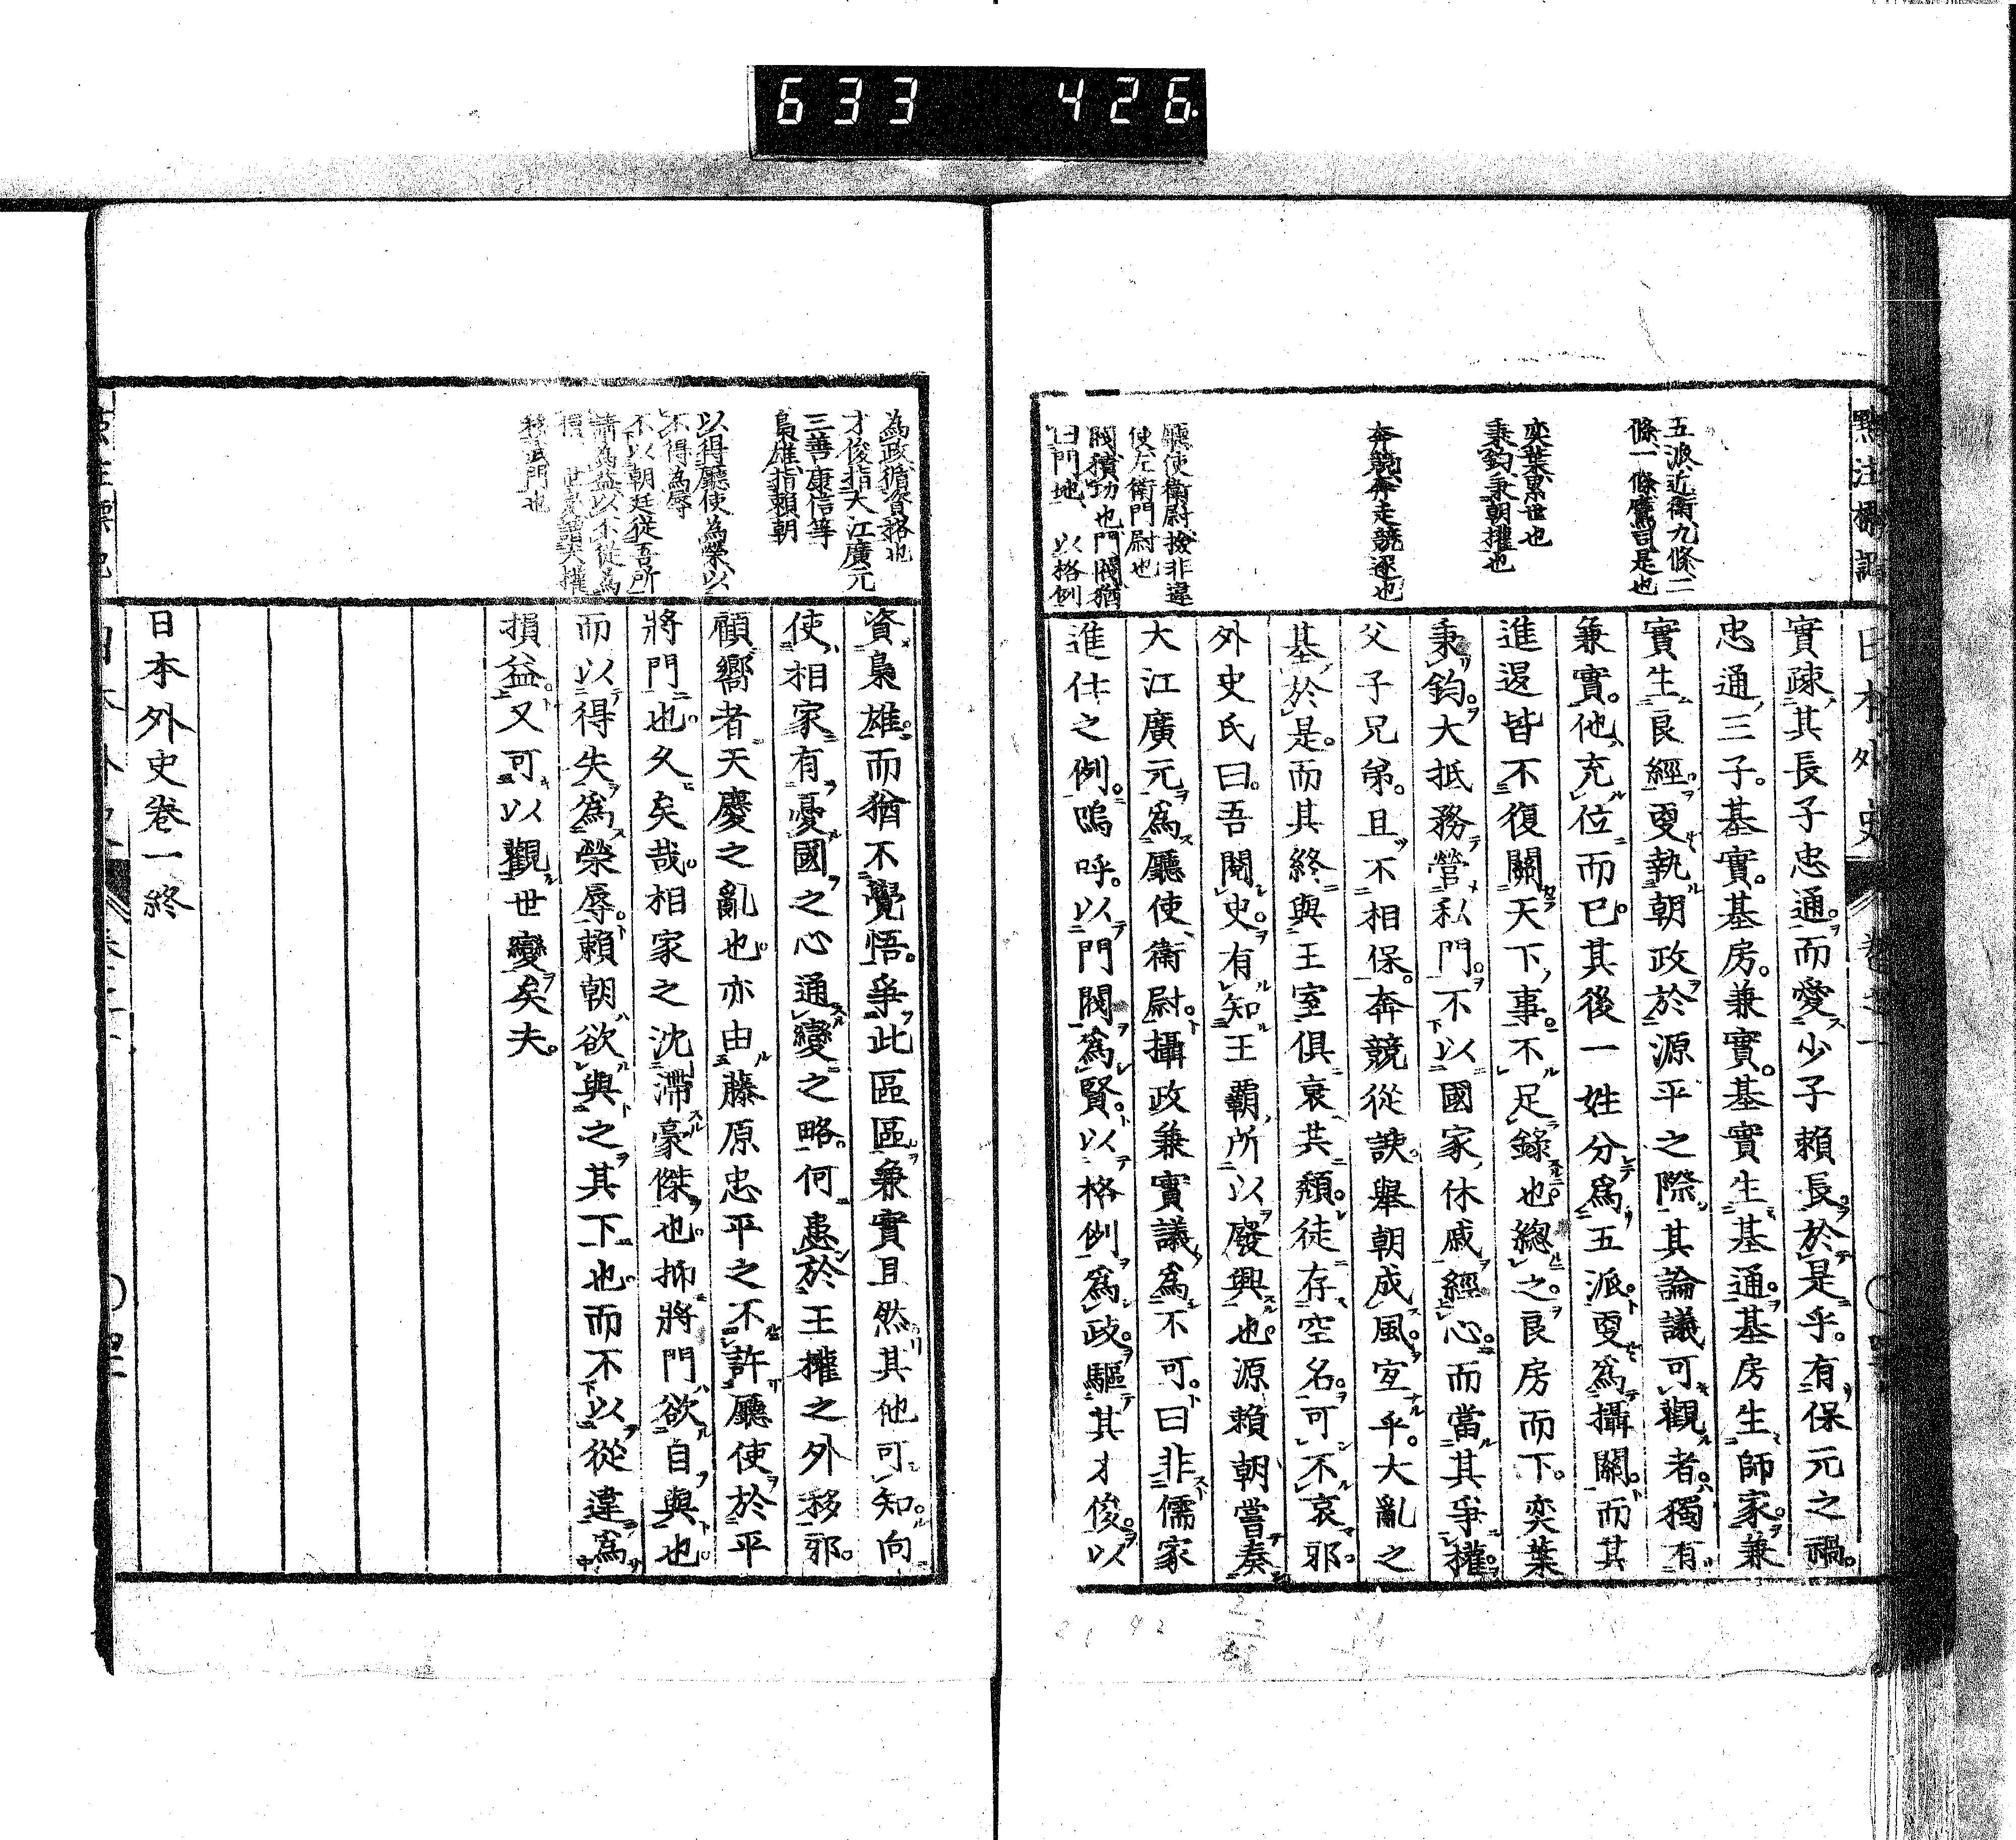 633 426
五派近衛九條二
條一條鷹司是也
奕葉累世也
秉鈞秉朝權也
奔競奔走競逐也
廳使衛尉撿非違
使左衛門尉也
閥積功也門閥猶
曰門地、以格例
實疎、其長子忠通。而愛少子賴長。於是乎。有保元之禍。
忠通、三子。基實。基房。兼實。基實生基通。基房生師家。兼
實生良經。更執朝政於源平之際。其論議可觀者。獨有
兼實。他充位而已。其後一姓分爲五派。更爲攝關。而其
進退皆不復關天下、事。不足錄也。總之。良房而下。奕葉
秉鈞。大抵務營私門。不以國家、休戚經心。而當其爭權。
父子兄弟。且不相保。奔競從諛。舉朝成風。宜乎。大亂之
基、於是。而其終與王室俱衰。其頽徒存空名。可不哀邪。
外史氏曰。吾閱史。有知王霸、所以廢興也。源賴朝嘗奏
大江廣元爲廳使、衛尉。攝政兼實議、爲不可。曰非儒家
進仕之例。嗚呼。以門閥爲賢。以格例爲政。驅其才俊。以
為政循資格也
才俊指大江廣元
三善康信等
梟雄指賴朝
以得廳使為榮、以
不得為辱
不以朝廷從吾所
請為益以不從為
資梟雄。而猶不覺悟。爭此區區。兼實且然。其他可知。向
使相家有憂國之心通變之略。何患於王權之外移邪。
顧嚮者天慶之亂也。亦由藤原忠平之不許廳使於平
將門也。久矣哉。相家之沈滯豪傑也。抑將門欲自與也。
而以得失爲榮辱。賴朝欲與之其下也。而不以從違爲
損益。又可以觀世變矣夫。
日本外史卷一終